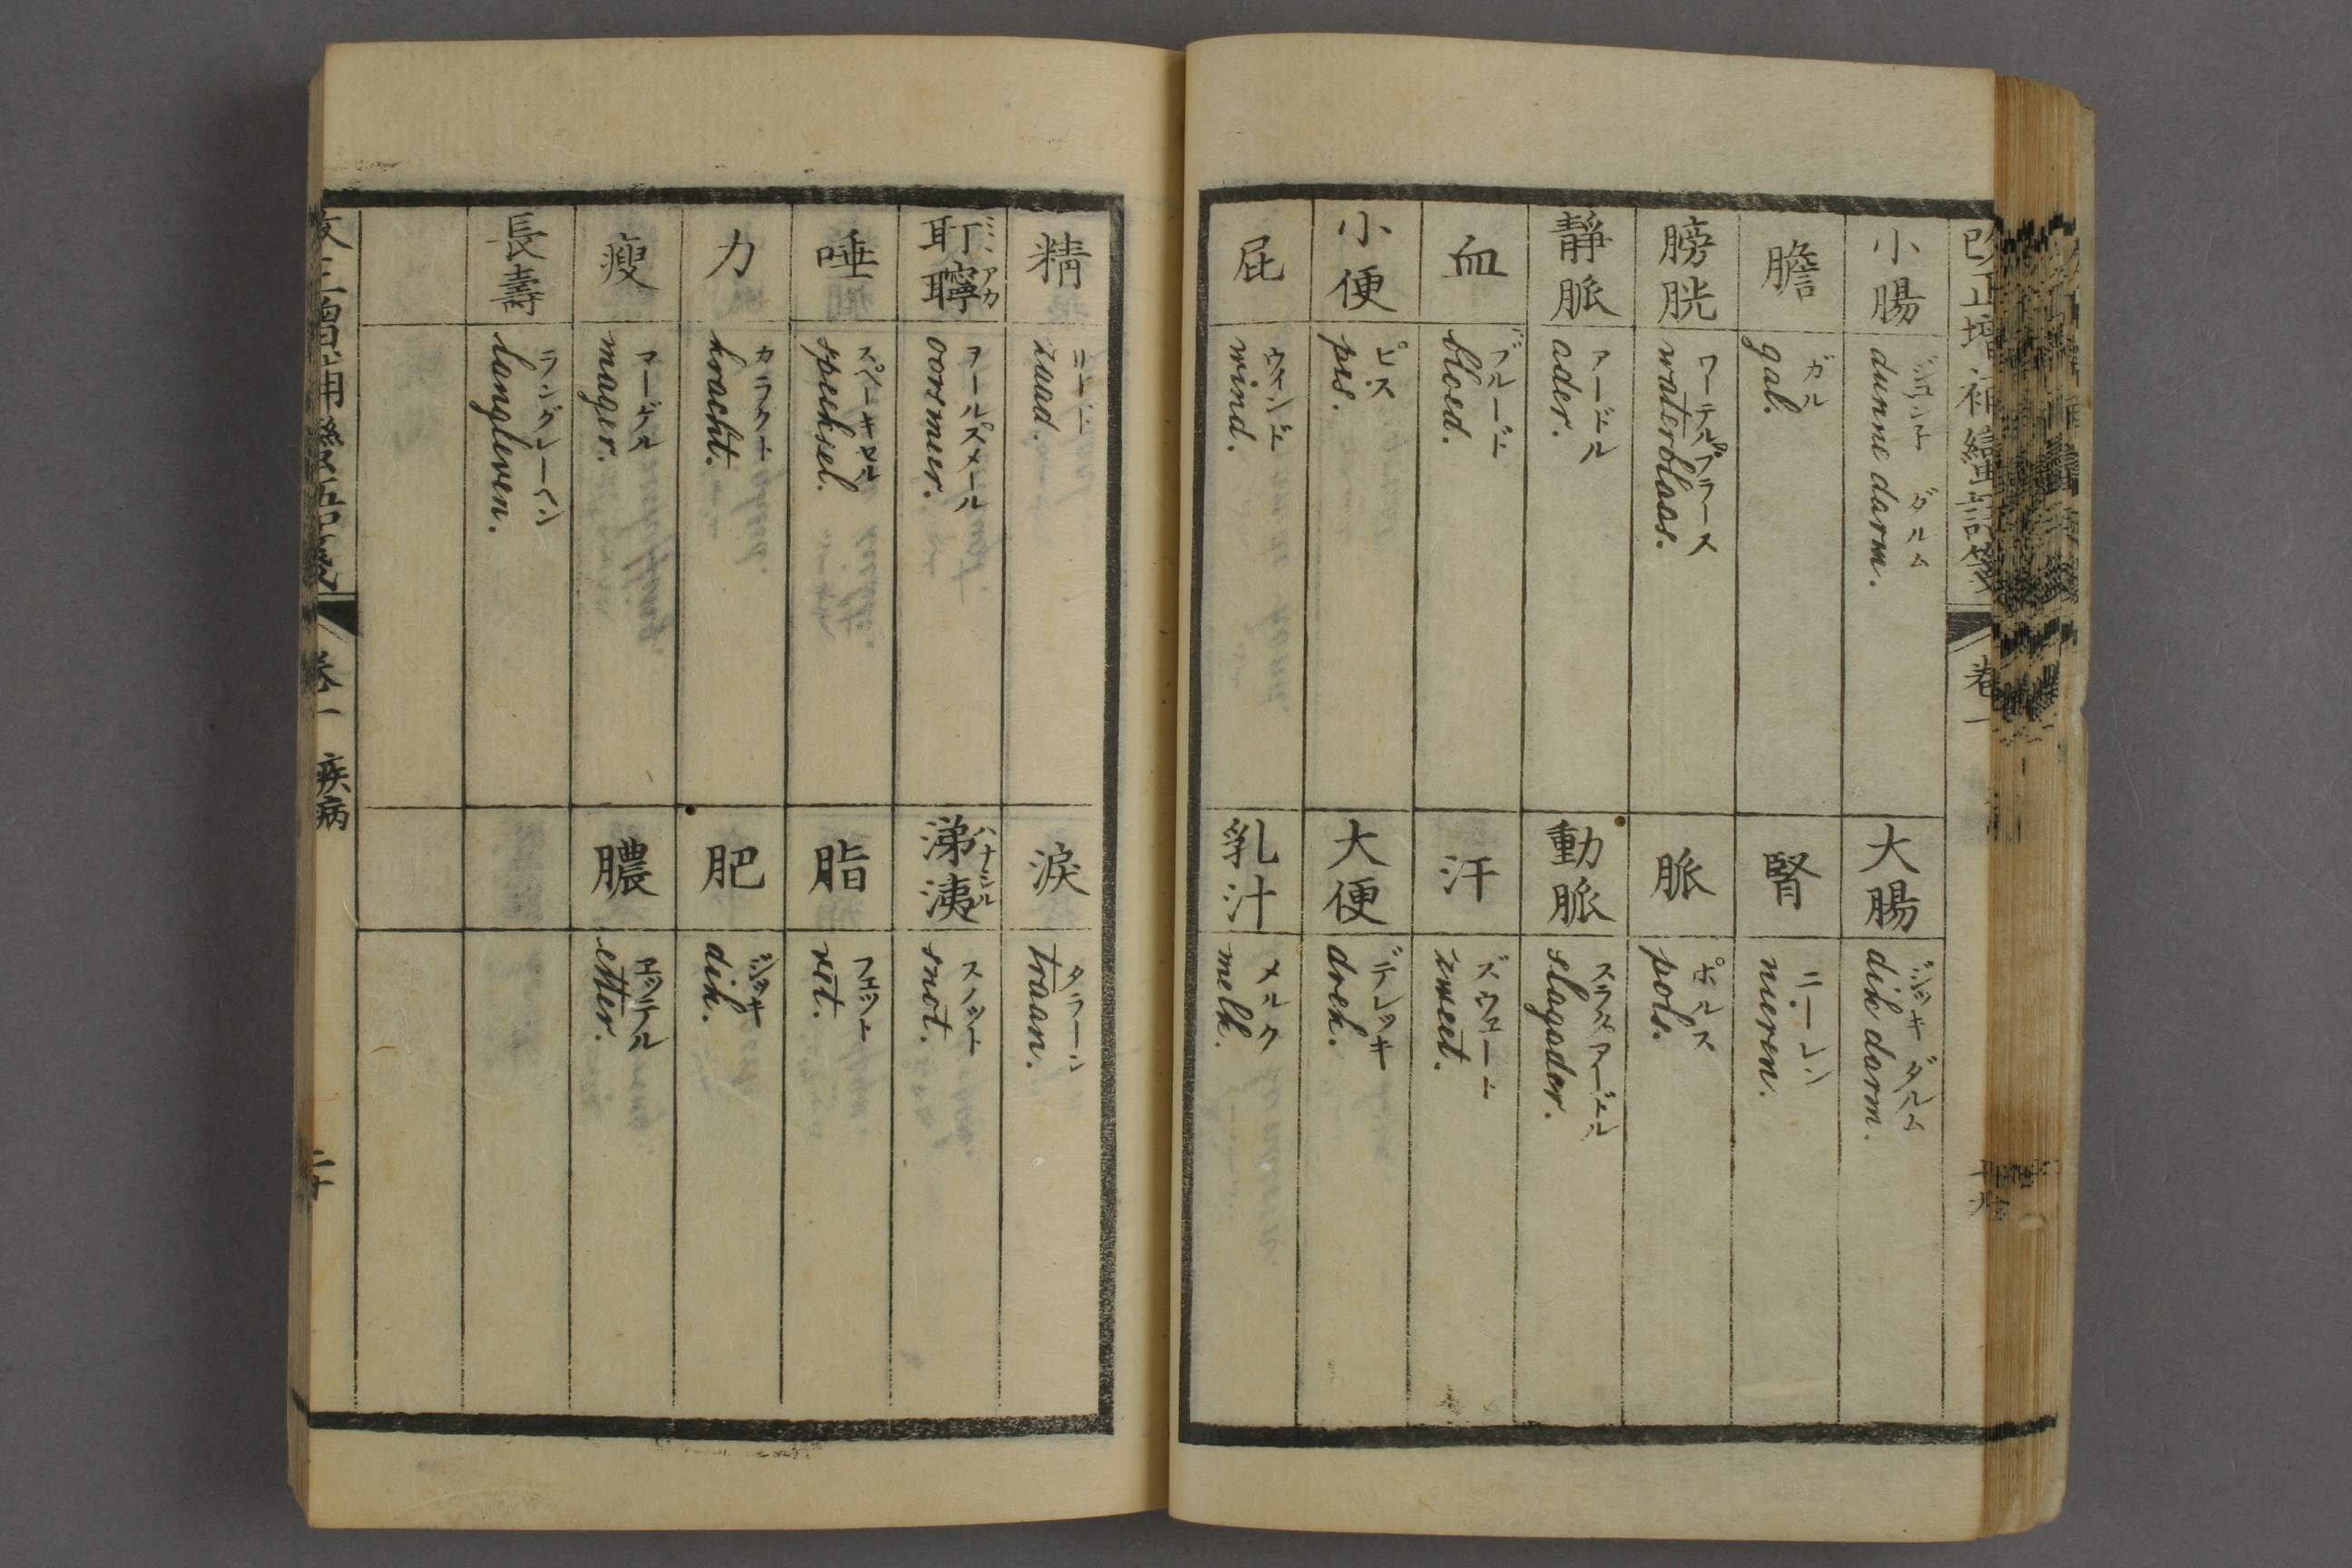 改正増補蠻語箋
卷一
小腸
ジュンネ ダルム
dunne darm.
大腸
ジッキ ダルム
dik darm.
膽
ガル
gal.
腎
ニーレン
nieren.
膀胱
ワーテルブラース
waterblaas.
脈
ポルス
pols.
靜脈
アーデル
ader.
動脈
スラグアーデル
slagader.
血
ブルード
bloed.
汗
ズウェート
zweet.
小便
ピス
pis.
大便
デレッキ
drek.
屁
ウィンド
wind.
乳汁
メルク
melk.
精
zaad.
淚
タラーン
traan.
耵聹
ミミアカ
ヲールスメール
oorsmeer.
涕洟
ハナシル
スノット
snot.
唾
スペーキセル
speeksel.
脂
フェット
vet.
力
カラクト
kracht.
肥
ジッキ
dik.
瘦
マーゲル
mager.
膿
エッテル
etter.
長壽
ラングレーヘン
langleven.
卷一 疾病